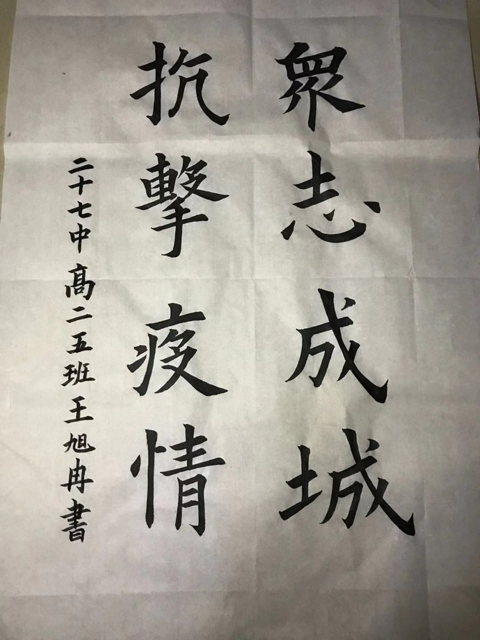 眾志成城
抗擊疫情
二十七中高二五班王旭冉書